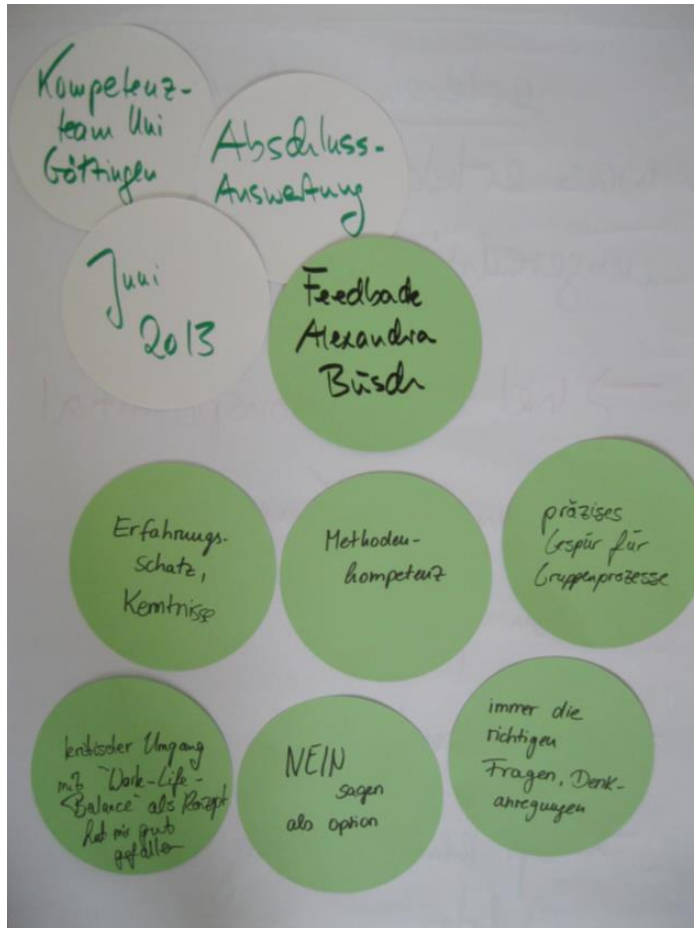 Kompetenz-
team Uni
Göttingen
Abschluss-
Auswertung
Juni
2013
Feedback
Alexandra
Büsch
Erfahrungs-
schatz,
Kenntnisse
Methoden-
kompetenz
präzises
Gespür für
Gruppenprozesse
kritischer Umgang
mit "Work-Life-
Balance" als Konzept
hat mir gut
gefallen
NEIN
sagen
als option
immer die
richtigen
Fragen, Denk-
anregungen